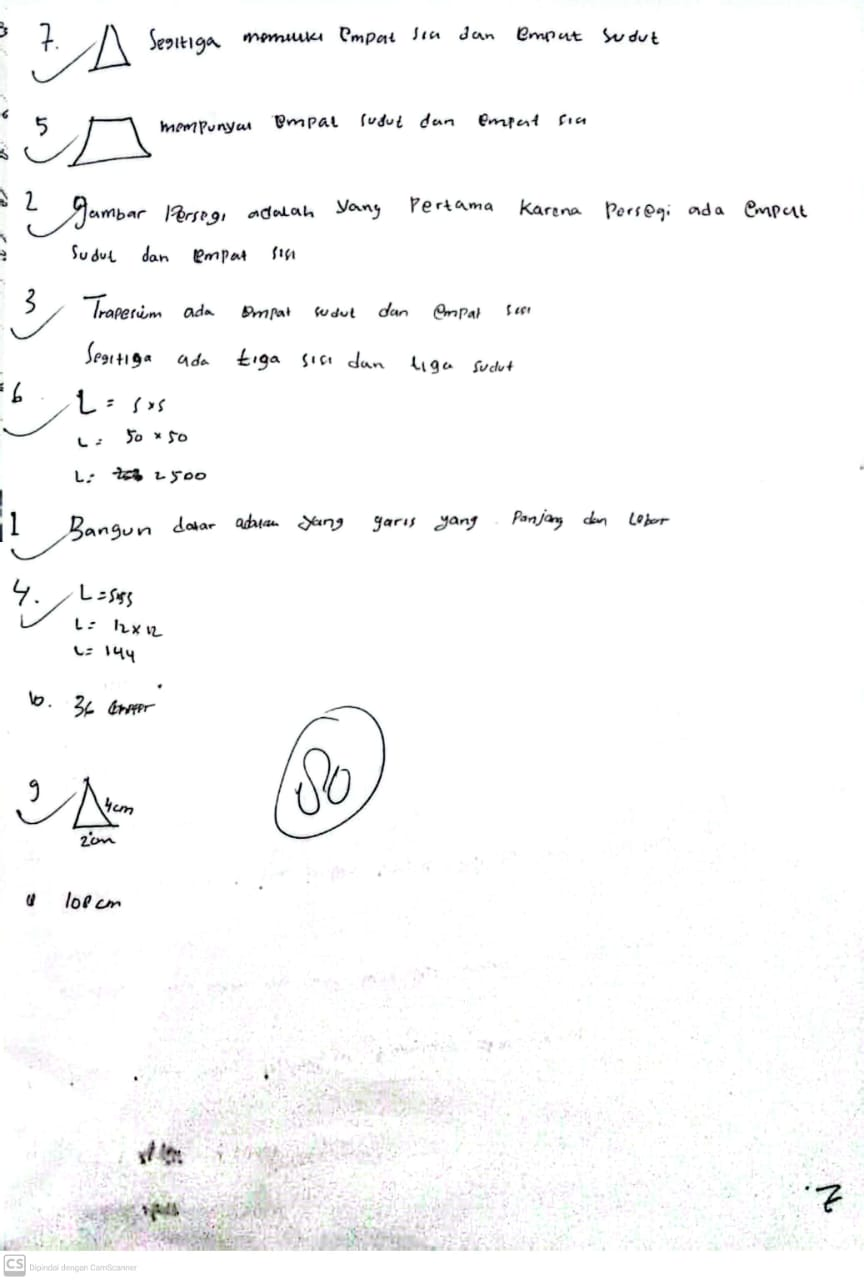 7. Segitiga memiliki Empat sisi dan Empat sudut
5 mempunyai Empat sudut dan empat sisi
2 gambar Persegi adalah yang Pertama Karena Persegi ada Empat
sudut dan empat sisi
3 Trapesium ada Empat sudut dan empat sisi
Segitiga ada tiga sisi dan tiga sudut
6 L = s×s
L = 50 × 50
L = 2500
1 Bangun datar adalah yang garis yang Panjang dan Lebar
4. L = s×s
L = 12 × 12
L = 144
10. 36
80
9 4cm
2cm
cm
2.
CS Dipindai dengan CamScanner